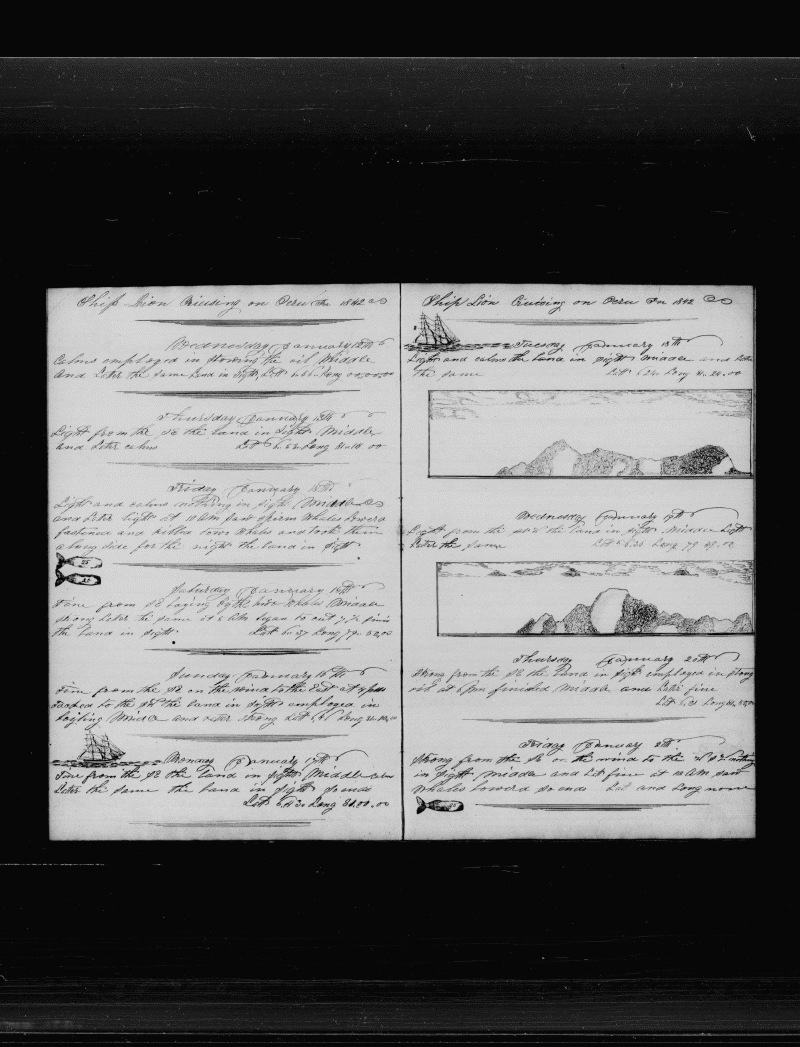 Ship Lion Cruising on Peru In 1842
Wednesday January 12th
Calms employed in stowing the oil Middle
and Later the same Land in sight Latt Long 00.00.00
Thursday January 13th
Light from the SE the land in sight Middle
and Later calms Lat 6.52 Long 81.10 00
Friday January 14th
Light and calms nothing in sight Middle
and Later light at 10 AM saw sperm Whales lowered
fastened and killed tow Whales and took them
along side for the night the land in sight
25
25
Saturday January 15th
Fine from SE laying by the two whales Middle
strong Later the same at 6 AM began to cut
the land in sight Lat 6.27 Long 79.52.00
Sunday January 16th
Fine from the SE on the wind to the East at 4 PM
tacked to the SW the land in sight employed in
boyling Middle and Later strong Lat Long
Monday January 17th
Fine from the SE the land in sight Middle calm
Later the same the land in sight so ends
Lat 6.12 Long 81.00.00
Ship Lion Cruising on Peru In 1842
Tuesday January 18th
Light and calms the land in sight Middle and Later
the same Latt 6.24 Long 81.24.00
Wednesday January 19th
Light from the the land in sight Middle Light
Later the same Lat 6.34 Long 79 49.00
Thursday January 20th
Strong from the SE the land in sight employed in stowing
oil at 6 PM finished Middle and Later fine
Lat 6.31 Long
Friday January 21th
Strong from the SE on the wind to the nothing
in sight Middle and Lat fine at 10 AM saw
Whales lowered so ends Lat and Long none